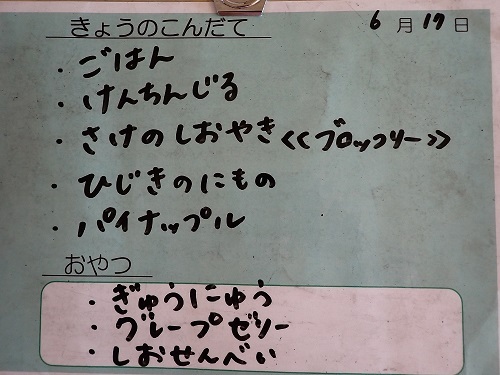 きょうのこんだて 6月17日
・ごはん
・けんちんじる
・さけのしおやき<<ブロッコリー>>
・ひじきのにもの
・パイナップル
おやつ
・ぎゅうにゅう
・グレープゼリー
・しおせんべい